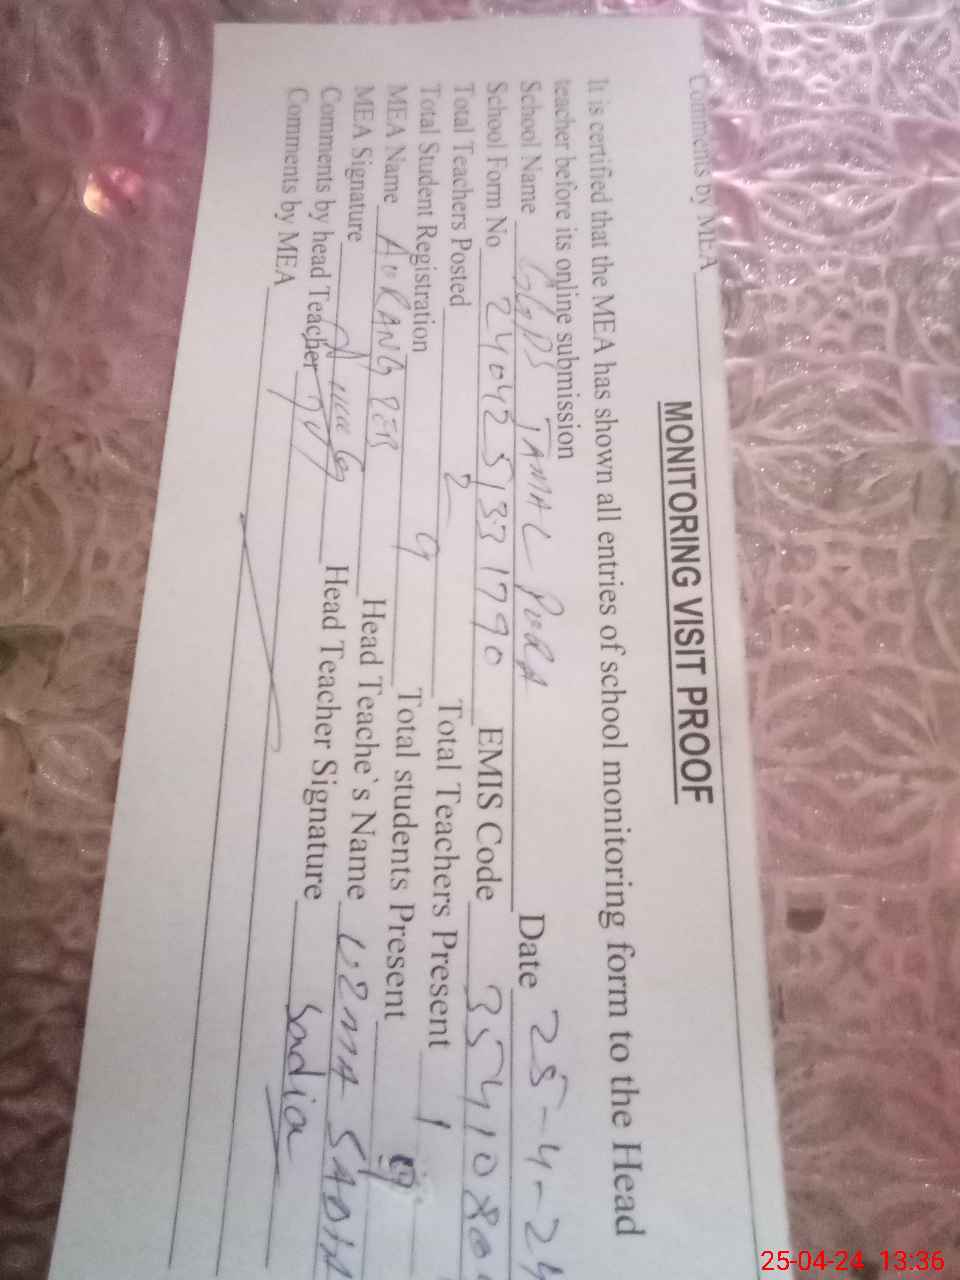 Comments by MEA
MONITORING VISIT PROOF
It is certified that the MEA has shown all entries of school monitoring form to the Head
teacher before its online submission
School Name GGPS JAMAL PURA Date 25-4-24
School Form No 24042513331790 EMIS Code 3541080
Total Teachers Posted 2 Total Teachers Present 1
Total Student Registration 9 Total students Present 9
MEA Name AURANGZEB Head Teache`s Name UZMA SADIA
MEA Signature Head Teacher Signature Sadia
Comments by head Teacher
Comments by MEA
25-04-24 13:36